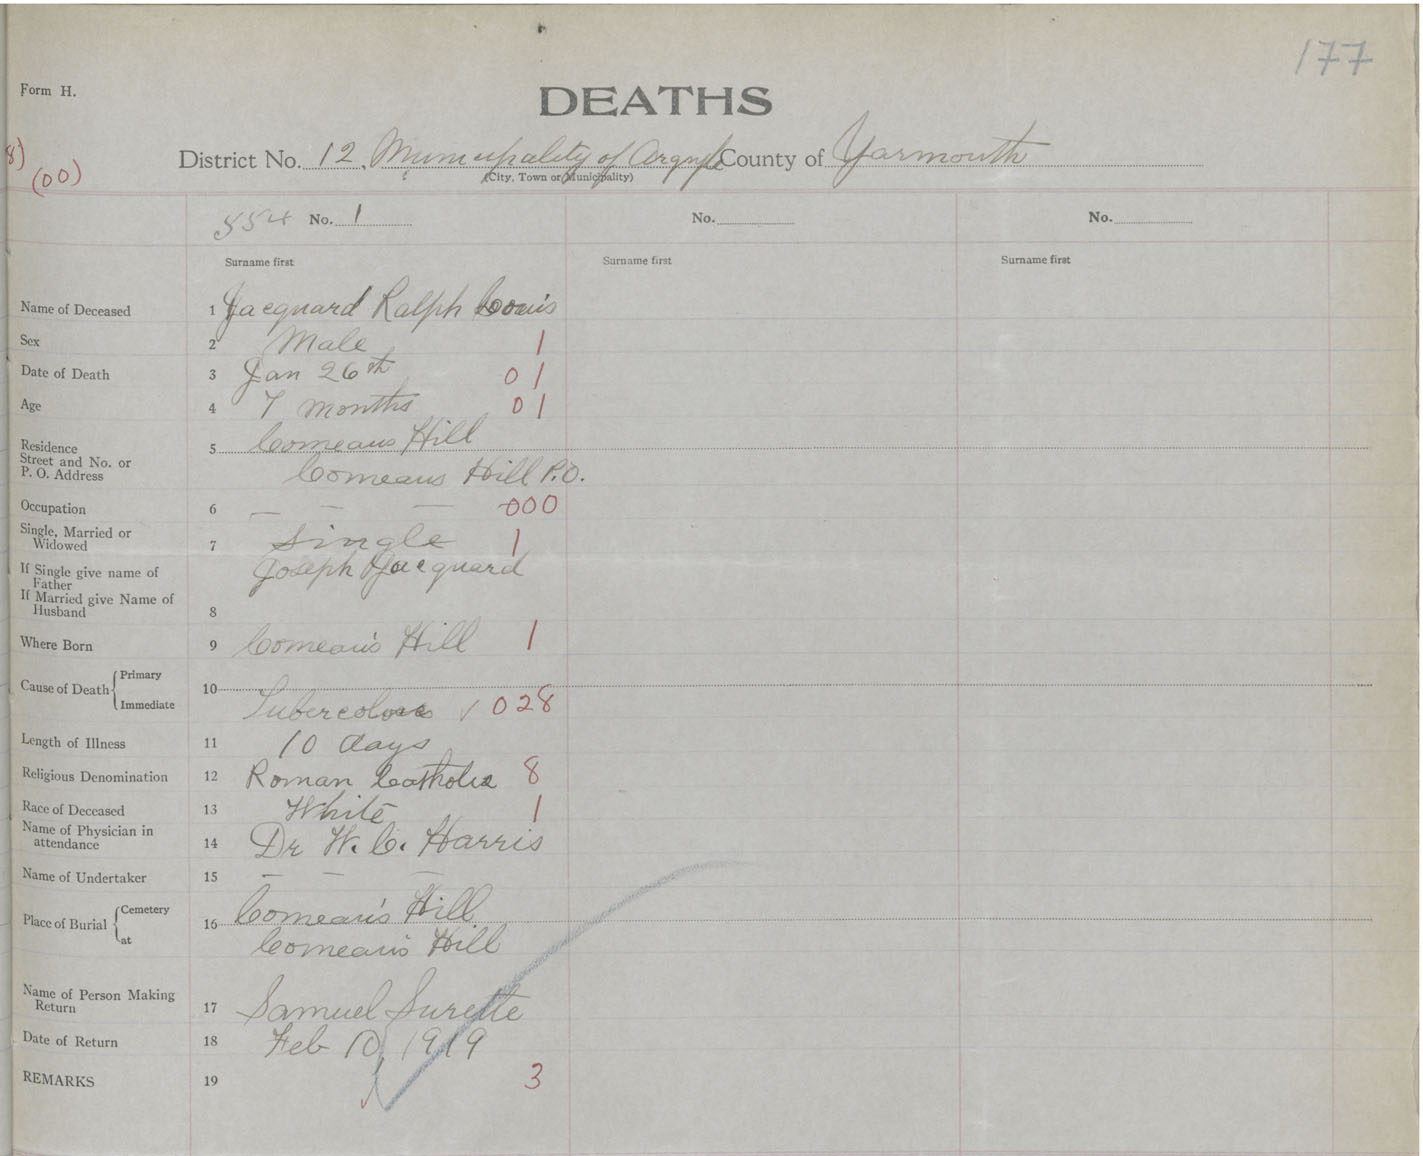 177
Form H.
DEATHS
8)
(00)
District No. 12, Municipality of Argyle County of Yarmouth
(City, Town or Municipality)
554 No. 1 No. No.
Surname first Surname first Surname first
Name of Deceased 1 Jacquard Ralph Louis
Sex 2 Male 1
Date of Death 3 Jan 26th 01
Age 4 7 months 01
Residence Street and No. or P. O. Address 5 Comeaus Hill
Comeaus Hill P.O.
Occupation 6 — — — 000
Single, Married or Widowed 7 Single 1
If Single give name of Father Joseph Jacquard
If Married give Name of Husband 8
Where Born 9 Comeau's Hill 1
Cause of Death { Primary 10
Immediate Tubercolous ✓ 028
Length of Illness 11 10 days
Religious Denomination 12 Roman Catholic 8
Race of Deceased 13 White 1
Name of Physician in attendance 14 Dr W. C. Harris
Name of Undertaker 15 — — —
Place of Burial { Cemetery 16 Comeau's Hill
at Comeau's Hill
Name of Person Making Return 17 Samuel Surette
Date of Return 18 Feb 10, 1919
REMARKS 19 3